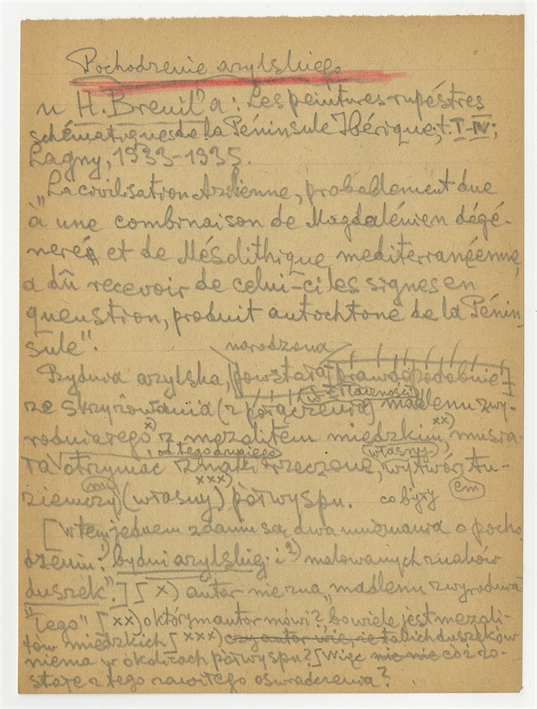 Pochodzenie azylskiego
u H. Breuil'a: Les peintures rupéstres
schématiques de la Péninsule Ibérique, t. I-IV;
Lagny, 1933-1935.
"La civilisation Azilienne, probablement due
à une combinaison de Magdalénien dégé-
neré et de Mésolithique mediterranéenne,
a dû recevoir de celui-ci les signes en
question, produit autochtone de la Pénin-
sule".
narodzona
Bydwa azylska, powstała prawdopodobnie
ze skrzyżowania (z połączenia) madlenu zwy-
rodniałego x) z mezolitem miedzkim xx), musia-
ła otrzymać od tego drugiego znaki rzeczone, (własny) wytwór tu-
ziemczy (własny) xxx) półwyspu. co były
[w tem jednem zdaniu są dwa mniemania o pocho-
dzeniu: 1) bydwi azylskiej i 2) malowanych znaków
duszek".] [x) autor nie zna "madlenu zwyrodnia-
łego" [xx) o którym autor mówi?, bo wiele jest mezoli-
tów miedzkich [xxx) czy autor wie, że takich duszków
niema w okolicach półwyspu? [Więc nic nie cóż zo-
staje z tego zawiłego oświadczenia?